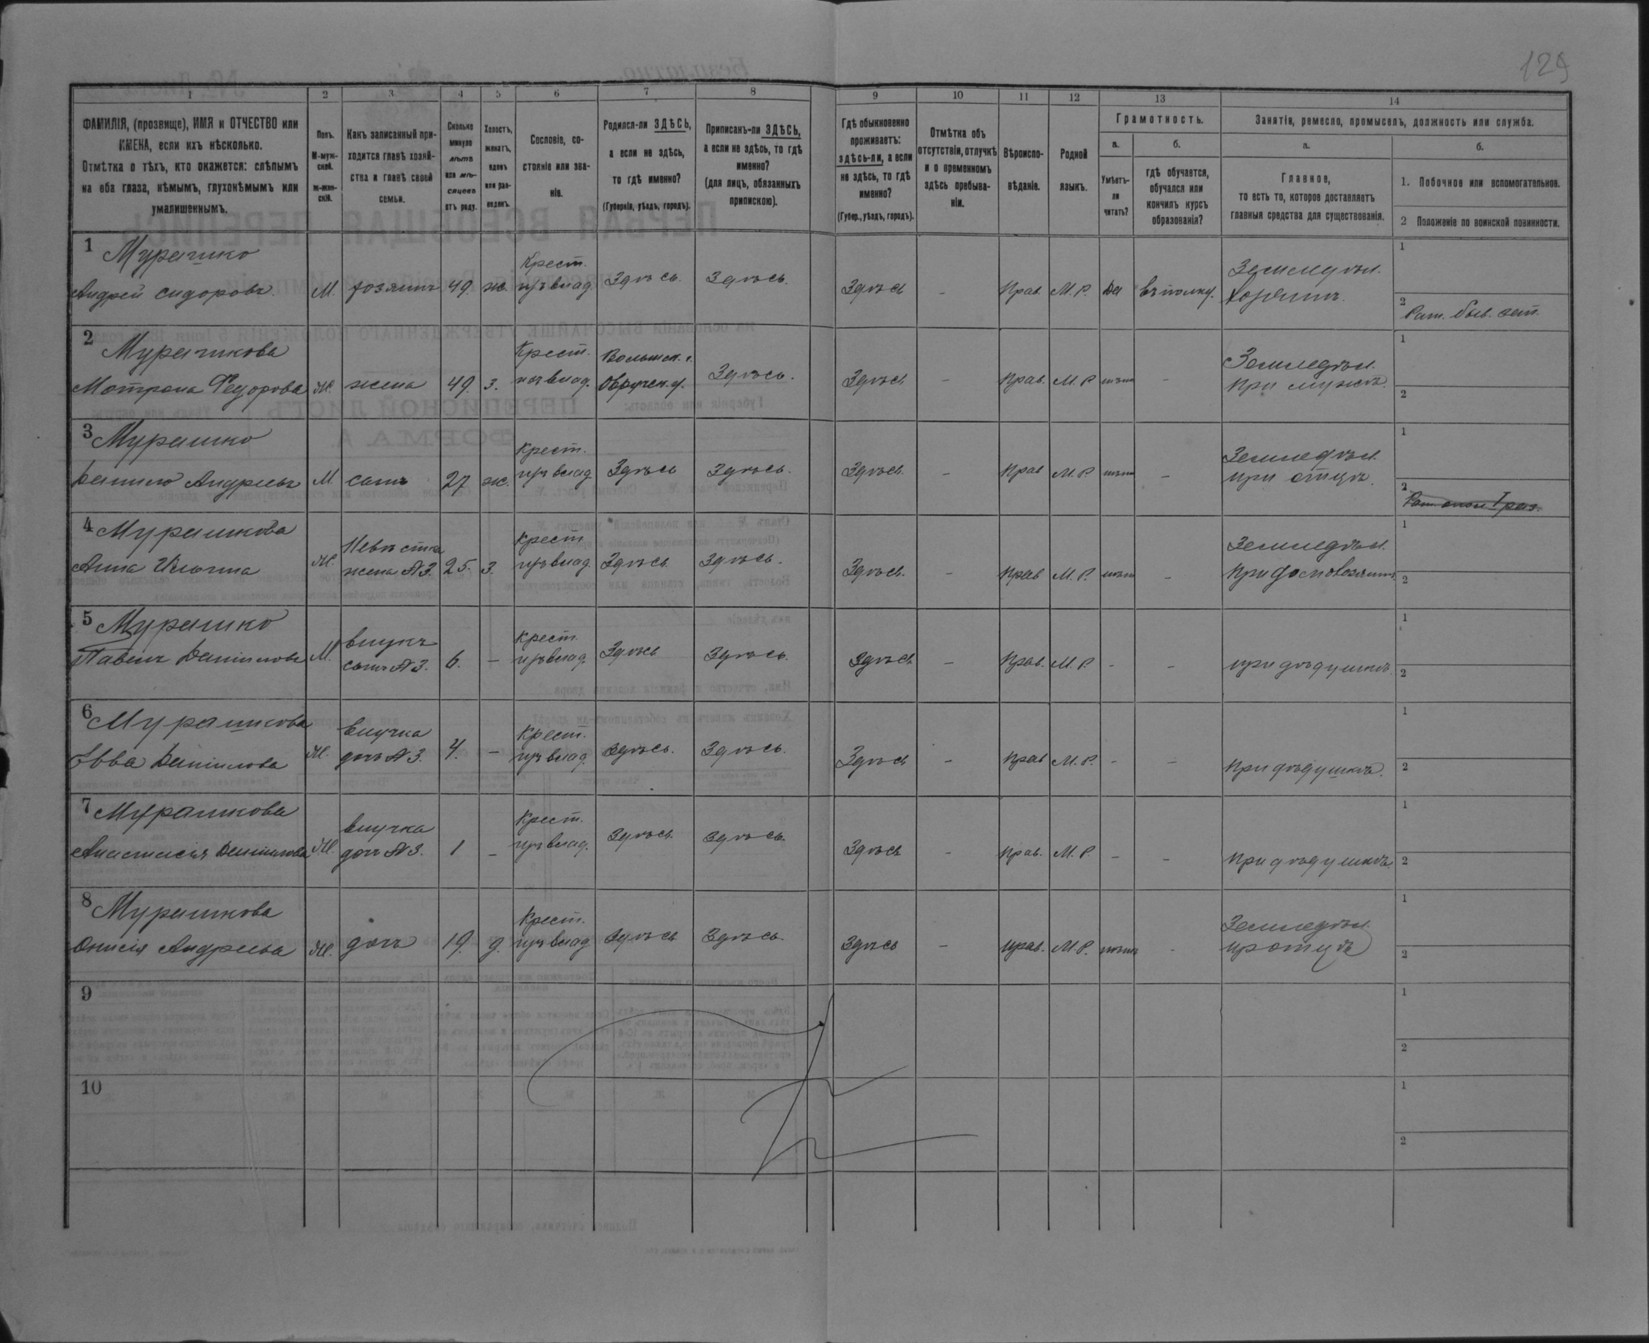 129
1 2 3 4 5 6 7 8 9 10 11 12 13 14
ФАМИЛІЯ, (прозвище), ИМЯ и ОТЧЕСТВО или
ИМЕНА, если ихъ нѣсколько.
Отмѣтка о тѣхъ, кто окажется: слѣпымъ
на оба глаза, нѣмымъ, глухонѣмымъ или
умалишеннымъ.
Полъ.
М-муж-
ской.
Ж-жен-
скій.
Какъ записанный при-
ходится главѣ хозяй-
ства и главѣ своей
семьи.
Сколько
минуло
лѣтъ
или мѣ-
сяцевъ
отъ роду.
Холостъ,
женатъ,
вдовъ
или раз-
веденъ.
Сословіе, со-
стояніе или зва-
ніе.
Родился-ли ЗДѢСЬ,
а если не здѣсь,
то гдѣ именно?
(Губернія, уѣздъ, городъ).
Приписанъ-ли ЗДѢСЬ,
а если не здѣсь, то гдѣ
именно?
(для лицъ, обязанныхъ
припискою).
Гдѣ обыкновенно
проживаетъ:
здѣсь-ли, а если
не здѣсь, то гдѣ
именно?
(Губер., уѣздъ, городъ).
Отмѣтка объ
отсутствіи, отлучкѣ
и о временномъ
здѣсь пребыва-
ніи.
Вѣроиспо-
вѣданіе.
Родной
языкъ.
Грамотность.
а.
Умѣетъ-
ли
читать?
б.
гдѣ обучается,
обучался или
кончилъ курсъ
образованія?
Занятіе, ремесло, промыселъ, должность или служба.
а.
Главное,
то есть то, которое доставляетъ
главныя средства для существованія.
б.
1. Побочное или вспомогательное.
2 Положеніе по воинской повинности.
1 Мурашко
Андрей Сидоровъ М. хозяинъ 49 ж. Крест. изъ влад. Здѣсь. Здѣсь. Здѣсь - Прав М.Р. да въ полку. Земледѣл. хозяинъ.
1
2
2 Мурашкова
Мотрона Федорова Ж. жена 49 з. Крест. изъ влад. Волынск. г. Овручск. у. Здѣсь. Здѣсь - Прав. М.Р. нѣтъ - Земледѣл. при мужѣ.
1
2
3 Мурашко
Данило Андреевъ М сынъ 27 ж. Крест. изъ влад. Здѣсь Здѣсь. Здѣсь - Прав М.Р. нѣтъ - Земледѣл. при отцѣ.
1
2
4 Мурашкова
Анна Ж. Невѣстка жена №3. 25. з. Крест изъ влад Здѣсь Здѣсь. Здѣсь. - Прав М.Р. нѣтъ - Земледѣл.
1
2
5 Мурашко
Павелъ Даниловъ М. внукъ сынъ №3. 6. - Крест изъ влад. Здѣсь Здѣсь. Здѣсь - Прав. М.Р. - - при дѣдушкѣ.
1
2
6 Мурашкова
Евва Данилова Ж. внучка дочь №3. 4. - Крест. изъ влад. Здѣсь. Здѣсь. Здѣсь - Прав М.Р. - - при дѣдушкѣ.
1
2
7 Мурашкова
Анастасія Данилова Ж. внучка дочь №3. 1 - Крест. изъ влад. Здѣсь Здѣсь Здѣсь - Прав. М.Р. - - при дѣдушкѣ
1
2
8 Мурашкова
Андреева Ж. дочь 19. д. Крест. изъ влад Здѣсь Здѣсь. Здѣсь - Прав. М.Р. нѣтъ - Земледѣл.
1
2
9
1
2
10
1
2